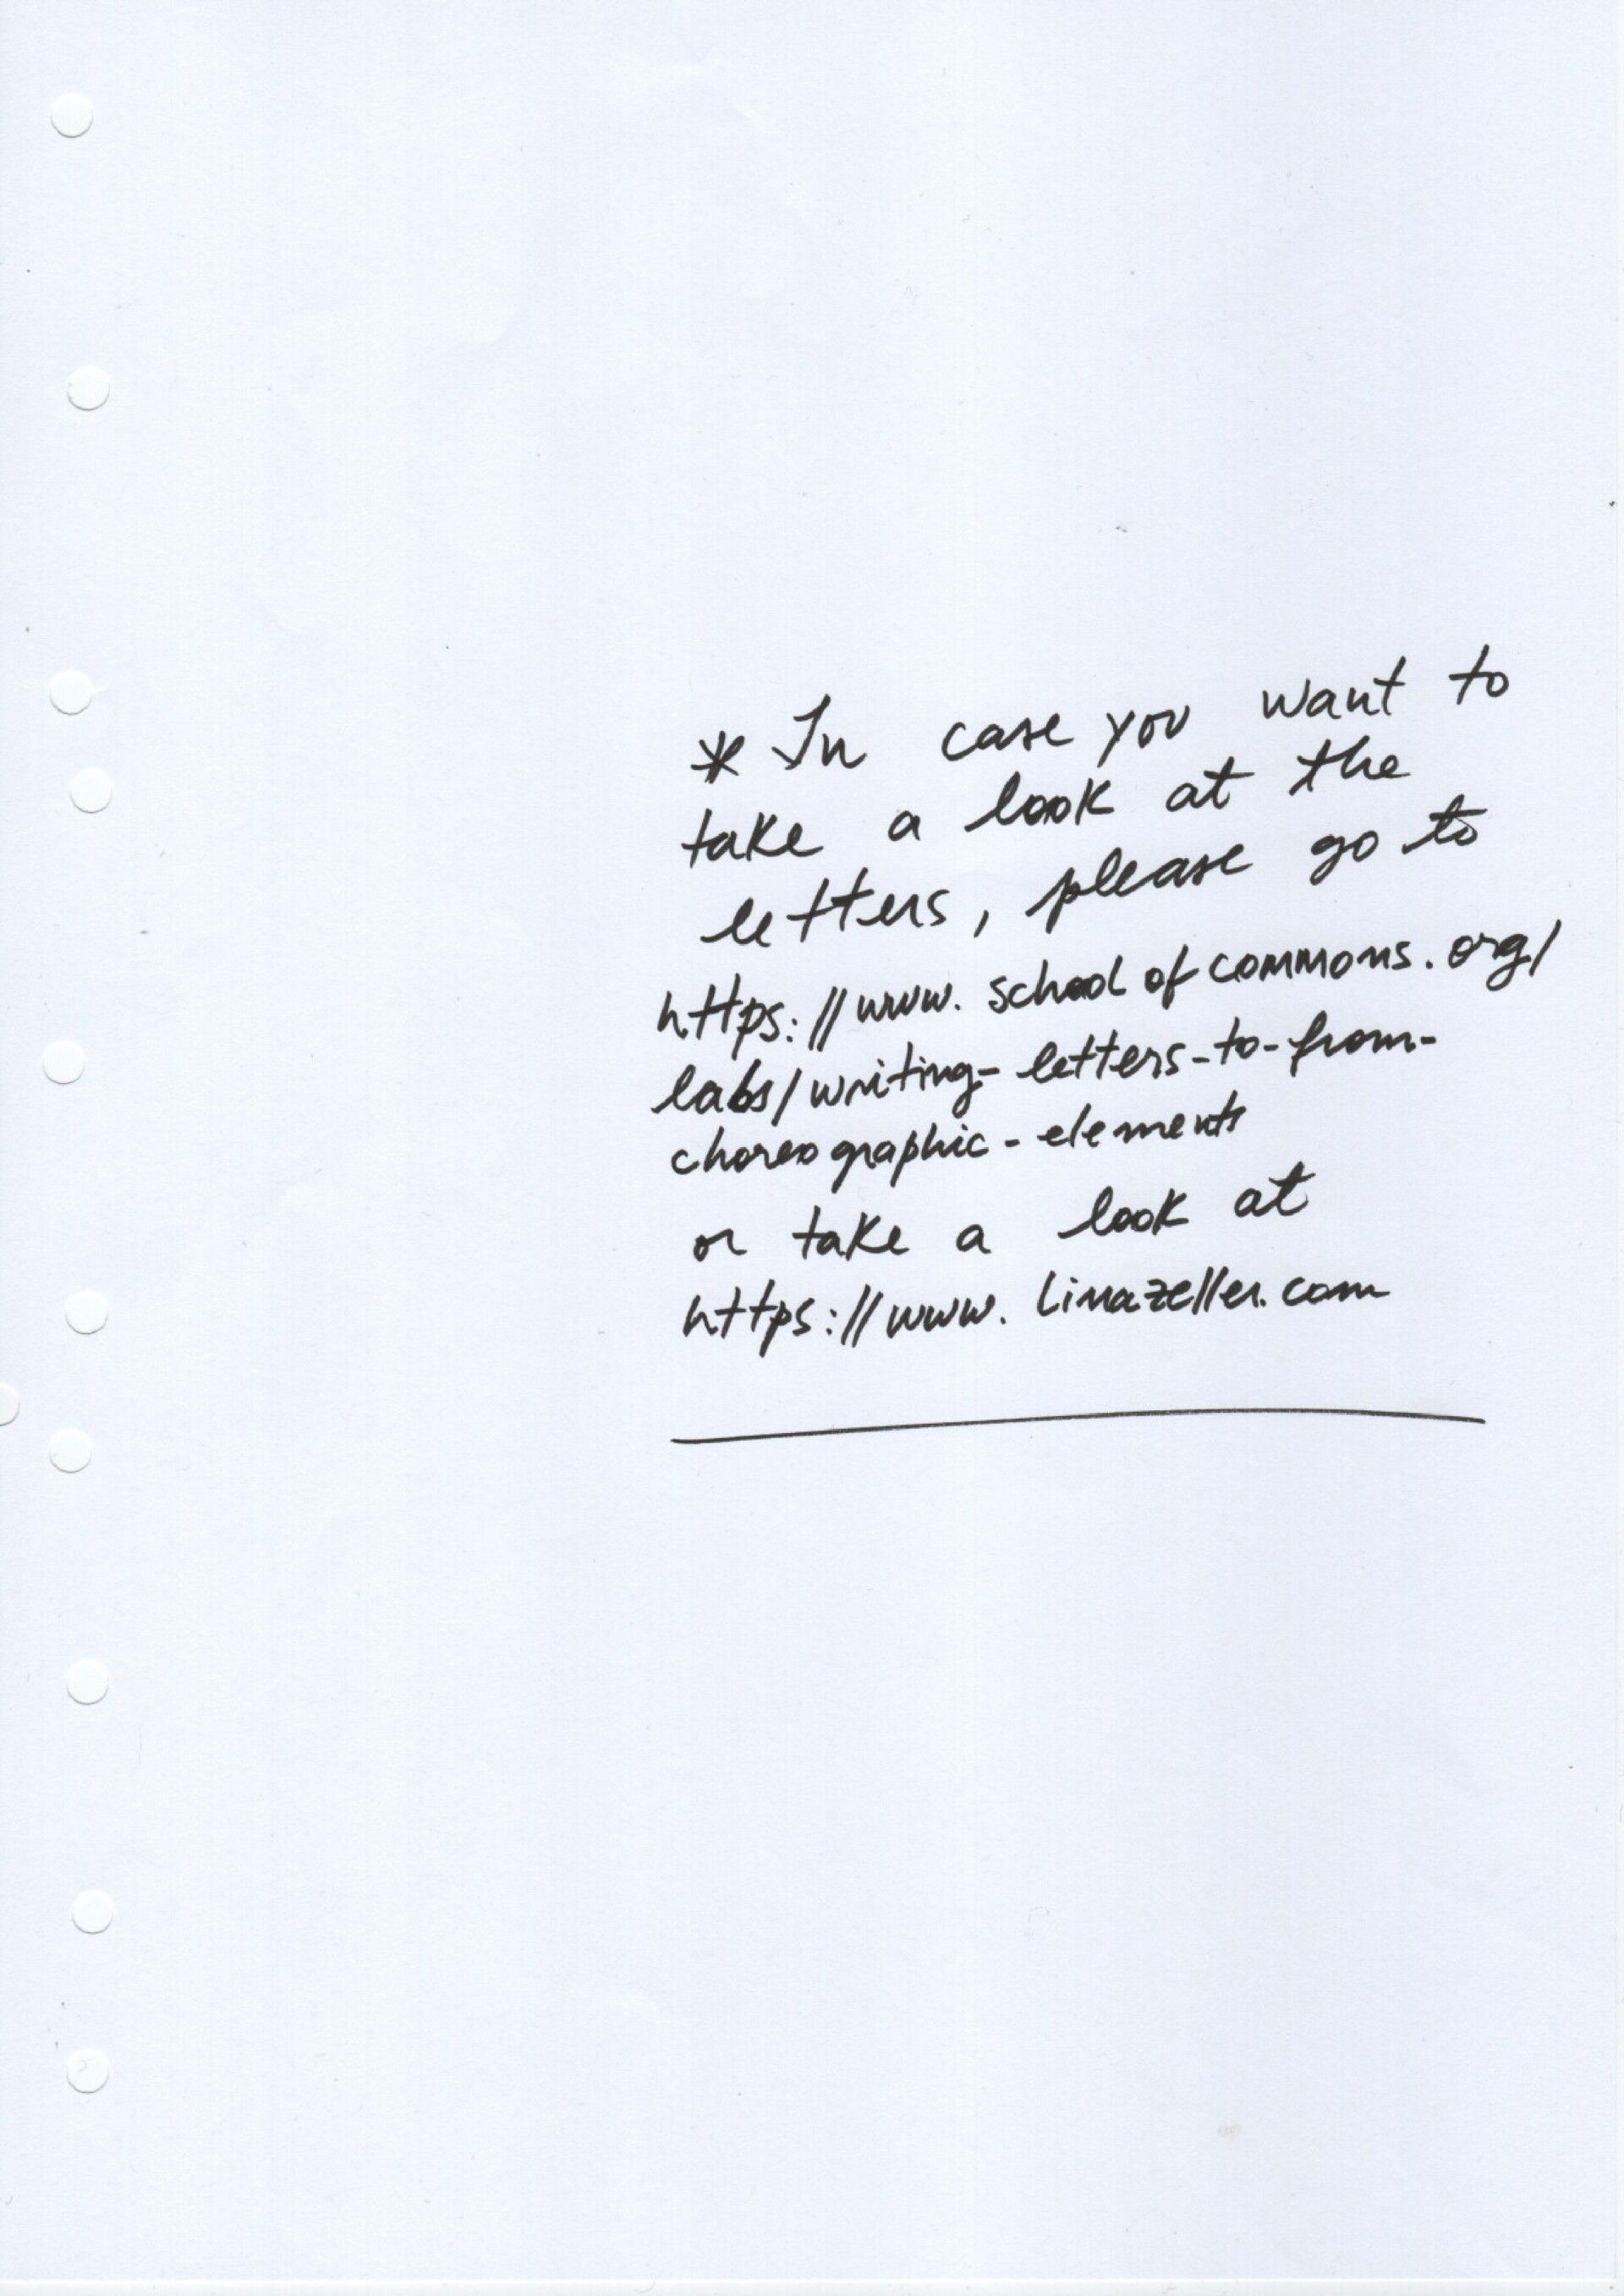 * In case you want to
take a look at the
letters, please go to
https://www.schoolofcommons.org/
labs/writing-letters-to-from-
choreographic-elements
or take a look at
https://www.linazeller.com